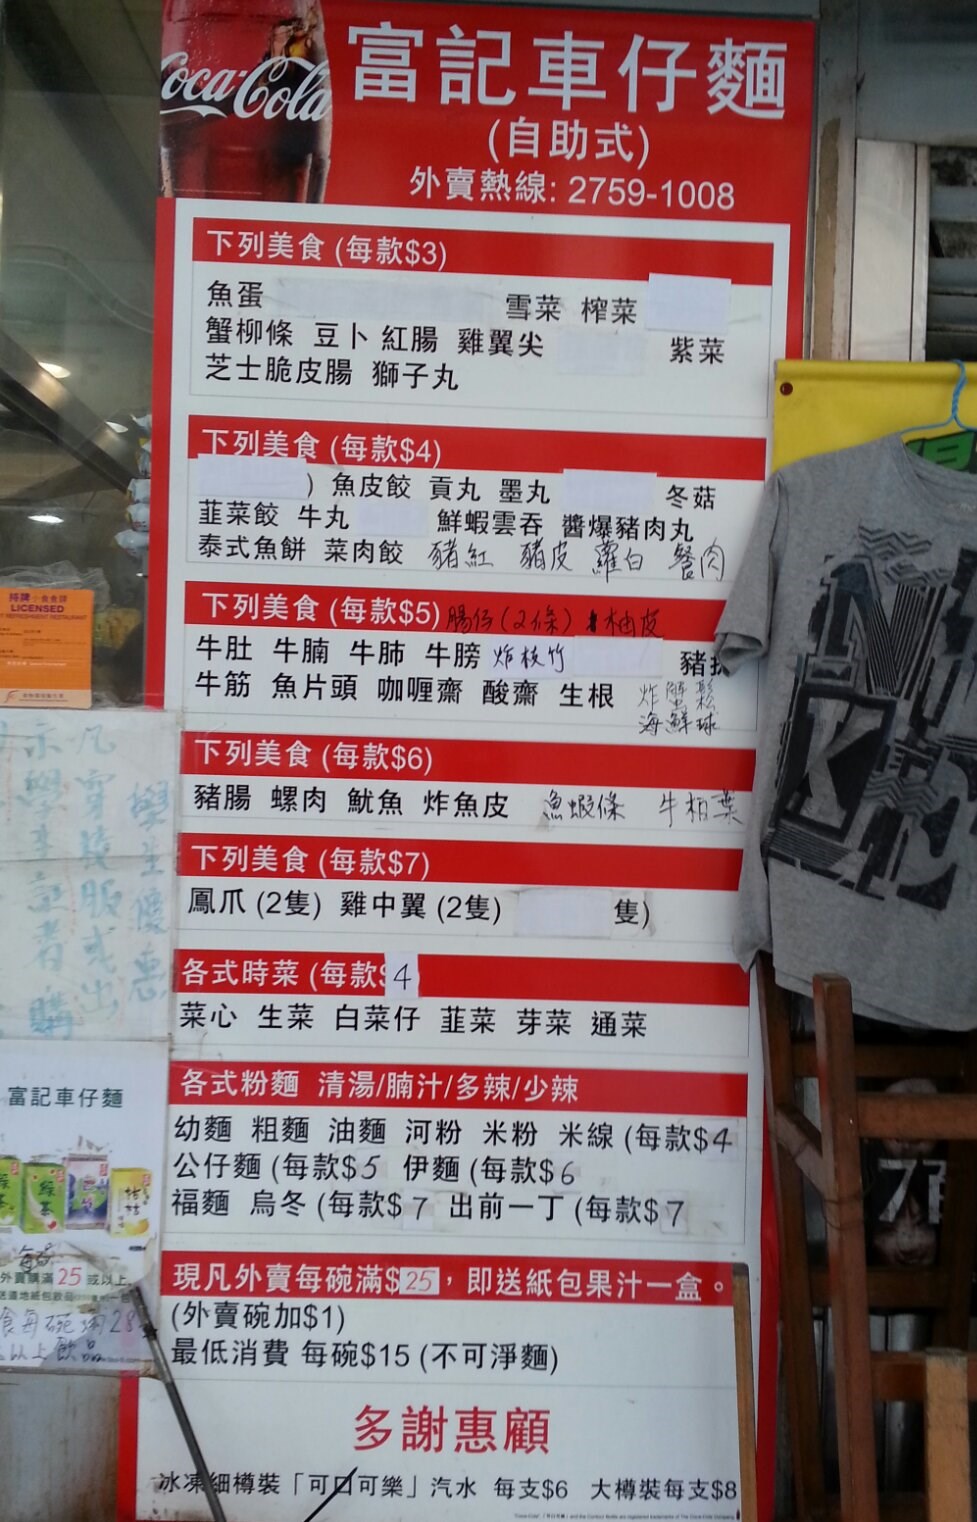 Coca-Cola
富記車仔麵
(自助式)
外賣熱線: 2759-1008
下列美食 (每款$3)
魚蛋 雪菜 榨菜
蟹柳條 豆卜 紅腸 雞翼尖 紫菜
芝士脆皮腸 獅子丸
下列美食 (每款$4)
) 魚皮餃 貢丸 墨丸 冬菇
韮菜餃 牛丸 鮮蝦雲吞 醬爆豬肉丸
泰式魚餅 菜肉餃 豬紅 豬皮 蘿白 餐肉
下列美食 (每款$5) 腸仔(2條) 柚皮
牛肚 牛腩 牛肺 牛膀 炸枝竹 豬
牛筋 魚片頭 咖喱齋 酸齋 生根 炸蟹鬆
海鮮球
下列美食 (每款$6)
豬腸 螺肉 魷魚 炸魚皮 魚蝦條 牛柏葉
下列美食 (每款$7)
鳳爪 (2隻) 雞中翼 (2隻) 隻)
各式時菜 (每款$4
菜心 生菜 白菜仔 韮菜 芽菜 通菜
各式粉麵 清湯/腩汁/多辣/少辣
幼麵 粗麵 油麵 河粉 米粉 米線 (每款$4
公仔麵 (每款$5 伊麵 (每款$6
福麵 烏冬 (每款$7 出前一丁 (每款$7
現凡外賣每碗滿$25，即送紙包果汁一盒。
(外賣碗加$1)
最低消費 每碗$15 (不可淨麵)
多謝惠顧
冰凍細樽裝「可口可樂」汽水 每支$6 大樽裝每支$8
持牌小食食肆
LICENSED
學生優惠
凡穿校服或出
示學生証者購
富記車仔麵
每碗
外賣購滿25或以上
食每碗滿28
以上飲品